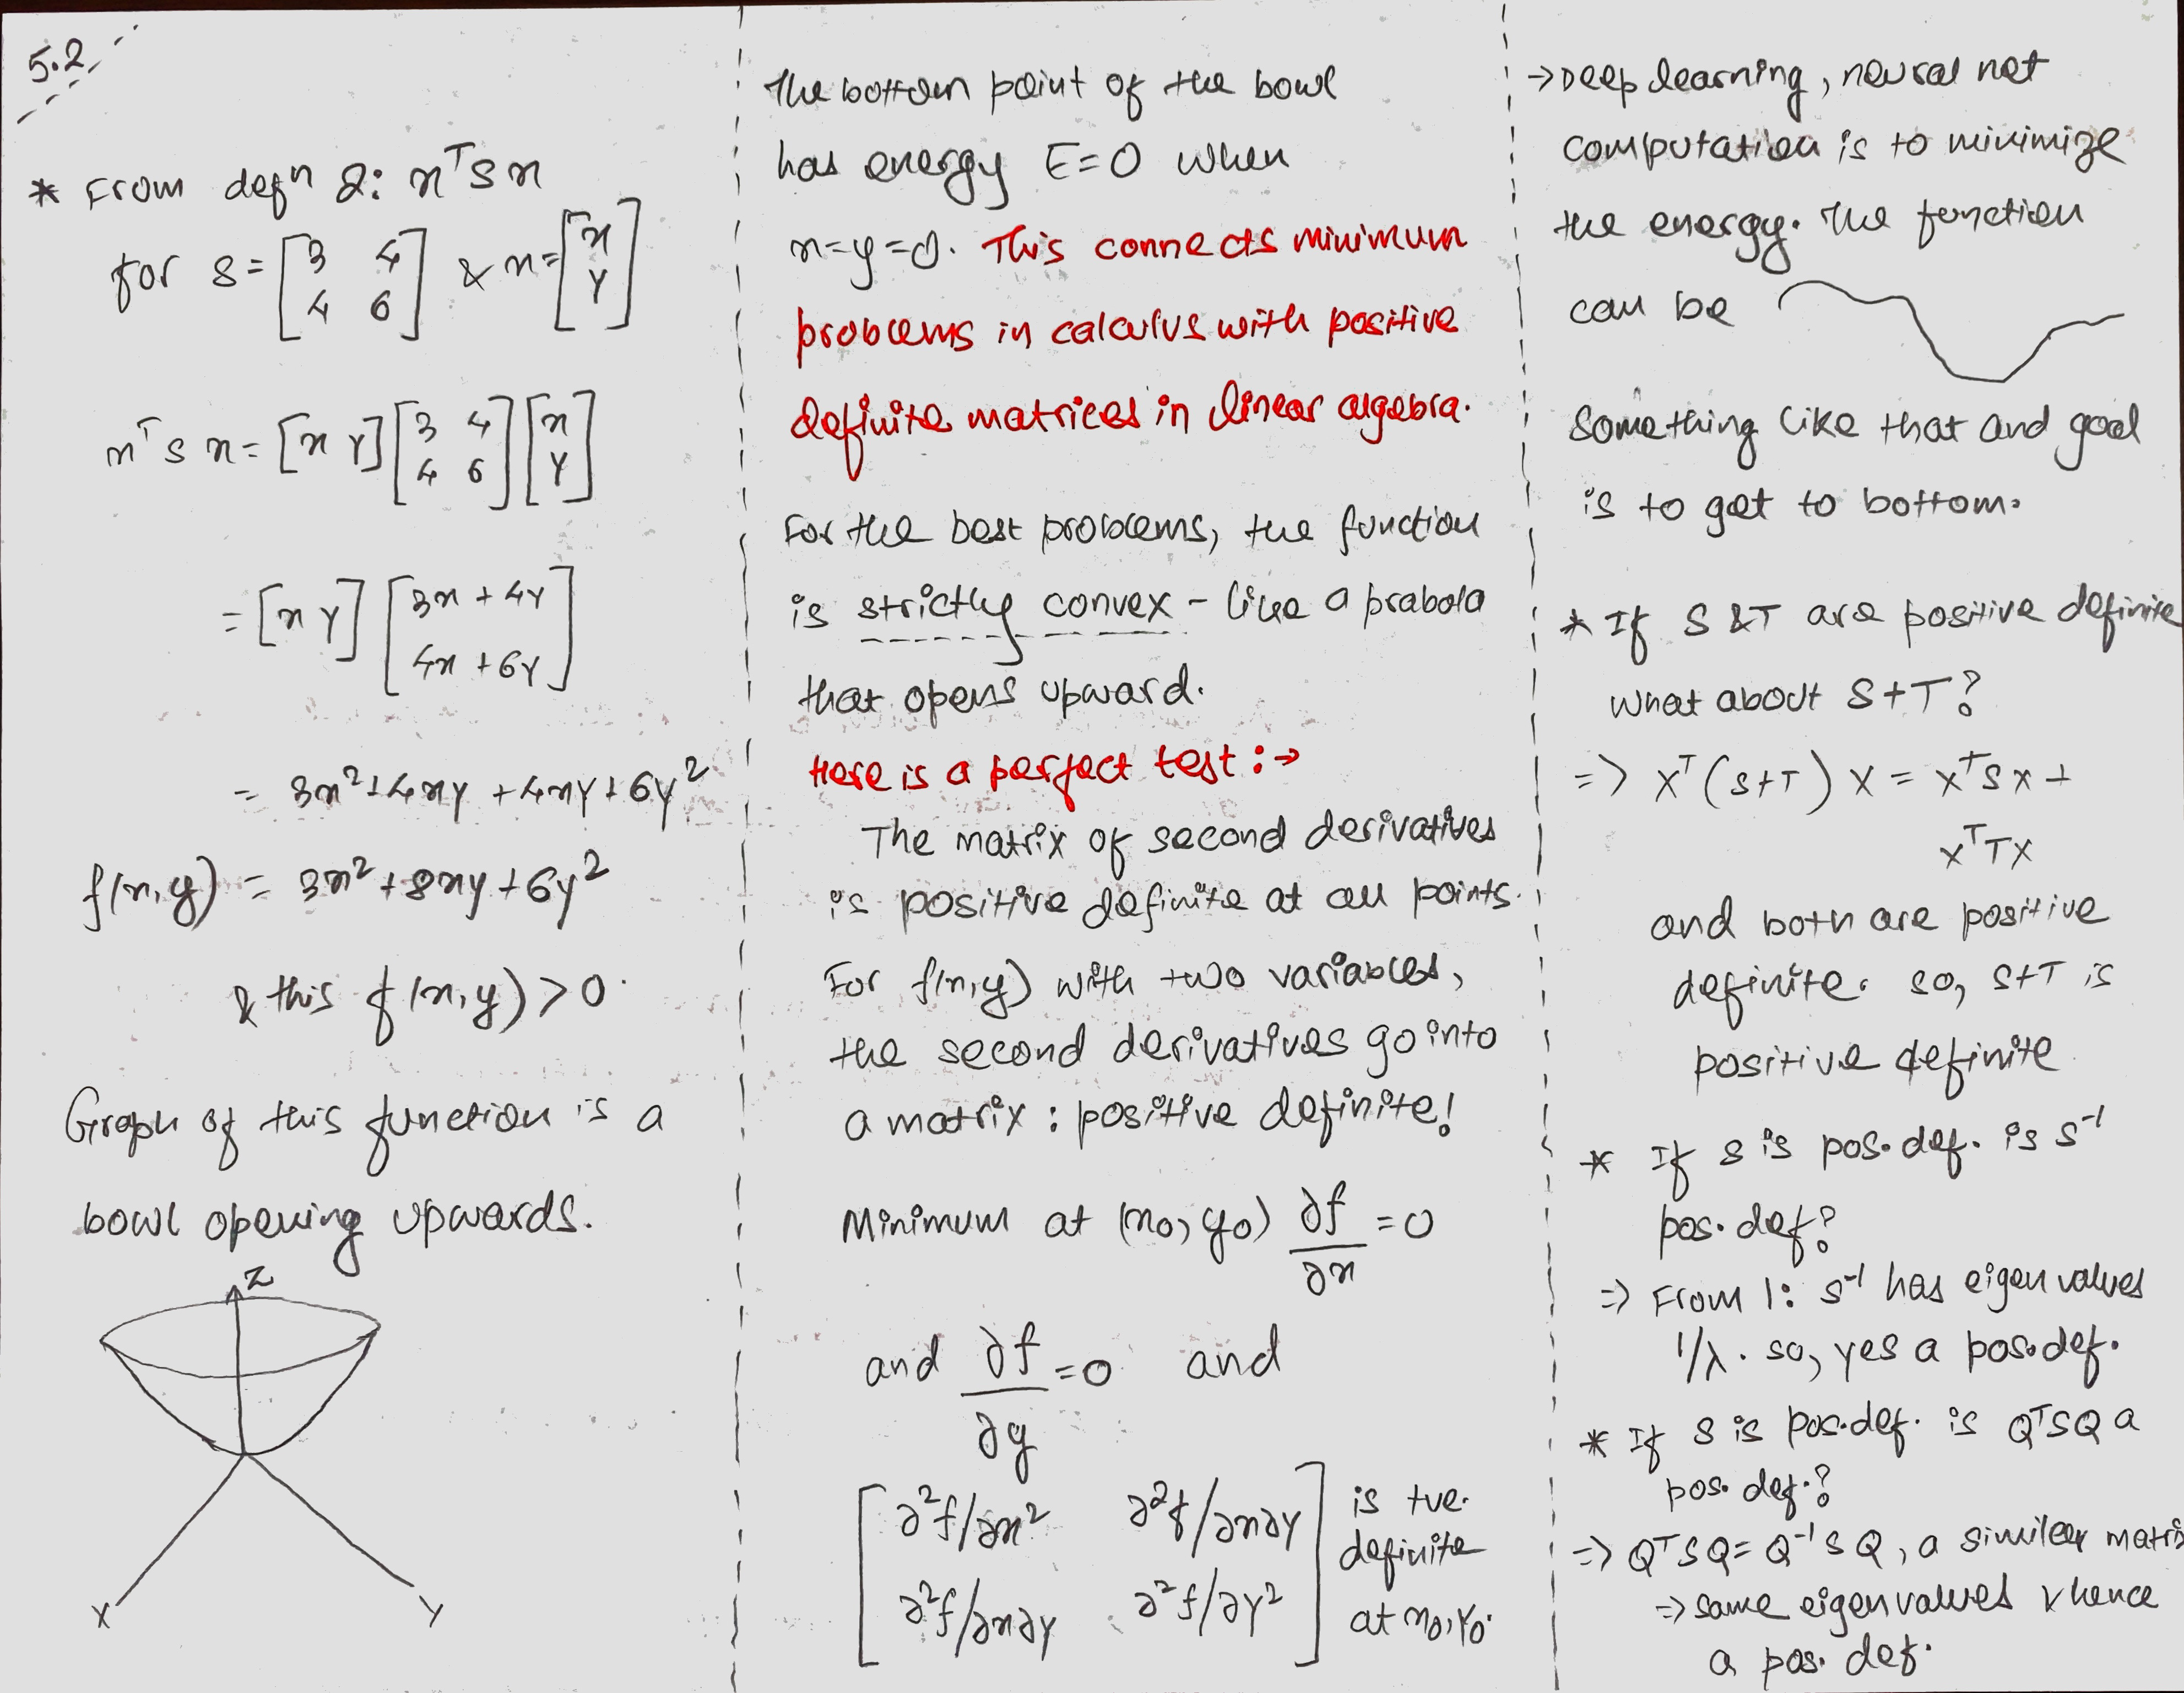 5.2
* From defn 2: xᵀSx
for S = [3 4; 4 6] & x = [x; y]
xᵀSx = [x y] [3 4; 4 6] [x; y]
= [x y] [3x + 4y; 4x + 6y]
= 3x² + 4xy + 4xy + 6y²
f(x,y) = 3x² + 8xy + 6y²
& this f(x,y) > 0.
Graph of this function is a
bowl opening upwards.
Z
X
Y
The bottom point of the bowl
has energy E=0 when
x=y=0. This connects minimum
problems in calculus with positive
definite matrices in linear algebra.
For the best problems, the function
is strictly convex - like a prabola
that opens upward.
Here is a perfect test :→
The matrix of second derivatives
is positive definite at all points.
For f(x,y) with two variables,
the second derivatives go into
a matrix : positive definite!
Minimum at (x0, y0) ∂f/∂x = 0
and ∂f/∂y = 0 and
[∂²f/∂x² ∂²f/∂x∂y; ∂²f/∂x∂y ∂²f/∂y²] is +ve.
definite
at x0, y0.
→ Deep learning, neural net
computation is to minimize
the energy. The function
can be
Something like that and goal
is to get to bottom.
* If S & T are positive definite
what about S+T?
=> Xᵀ(S+T) X = XᵀSX +
XᵀTX
and both are positive
definite. so, S+T is
positive definite
* If S is pos. def. is S⁻¹
pos. def?
=> From 1: S⁻¹ has eigen values
1/λ. so, yes a pos. def.
* If S is pos. def. is QᵀSQ a
pos. def.?
=> QᵀSQ = Q⁻¹SQ, a similar matrix
=> same eigen values & hence
a pos. def.